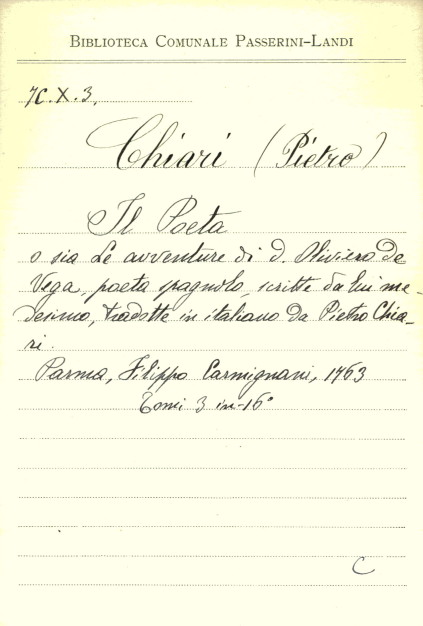 BIBLIOTECA COMUNALE PASSERINI-LANDI
7C.X.3.
Chiari (Pietro)
Il Poeta
o sia Le avventure di D. Oliviero De
Vega, poeta spagnolo, scritte da lui me-
desimo, tradotte in italiano da Pietro Chia-
ri.
Parma, Filippo Carmignani, 1763
Tomi 3 in-16°
C